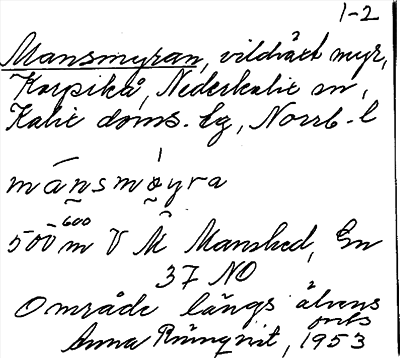 1-2
Mansmyran, vildväxt myr,
Karpikå, Nederkalix sn,
Kalix doms. lg, Norrb. l
månsmøyra
500-600 m V M Manshed, En
37 NO
Område längs älvens
Anna Rönqvist, 1953